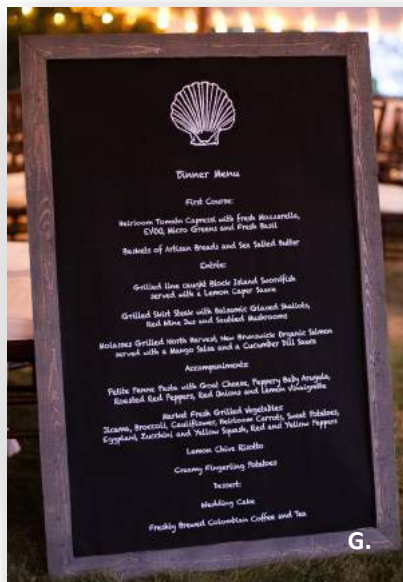 Dinner Menu
First Course:
Heirloom Tomato Capressi with Fresh Mozzarella,
EVOO, Micro Greens and Fresh Basil
Baskets of Artisan Breads and Sea Salted Butter
Entrée:
Grilled line caught Block Island Swordfish
served with a Lemon Caper Sauce
Grilled Skirt Steak with Balsamic Glazed Shallots,
Red Wine Jus and Sautéed Mushrooms
Molasses Grilled North Harvest, New Brunswick Organic Salmon
served with a Mango Salsa and a Cucumber Dill Sauce
Accompaniments:
Petite Penne Pasta with Goat Cheese, Peppery Baby Arugula,
Roasted Red Peppers, Red Onions and Lemon Vinaigrette
Market Fresh Grilled Vegetables:
Jicama, Broccoli, Cauliflower, Heirloom Carrots, Sweet Potatoes,
Eggplant, Zucchini and Yellow Squash, Red and Yellow Peppers
Lemon Chive Risotto
Creamy Fingerling Potatoes
Dessert:
Wedding Cake
Freshly Brewed Colombian Coffee and Tea
G.